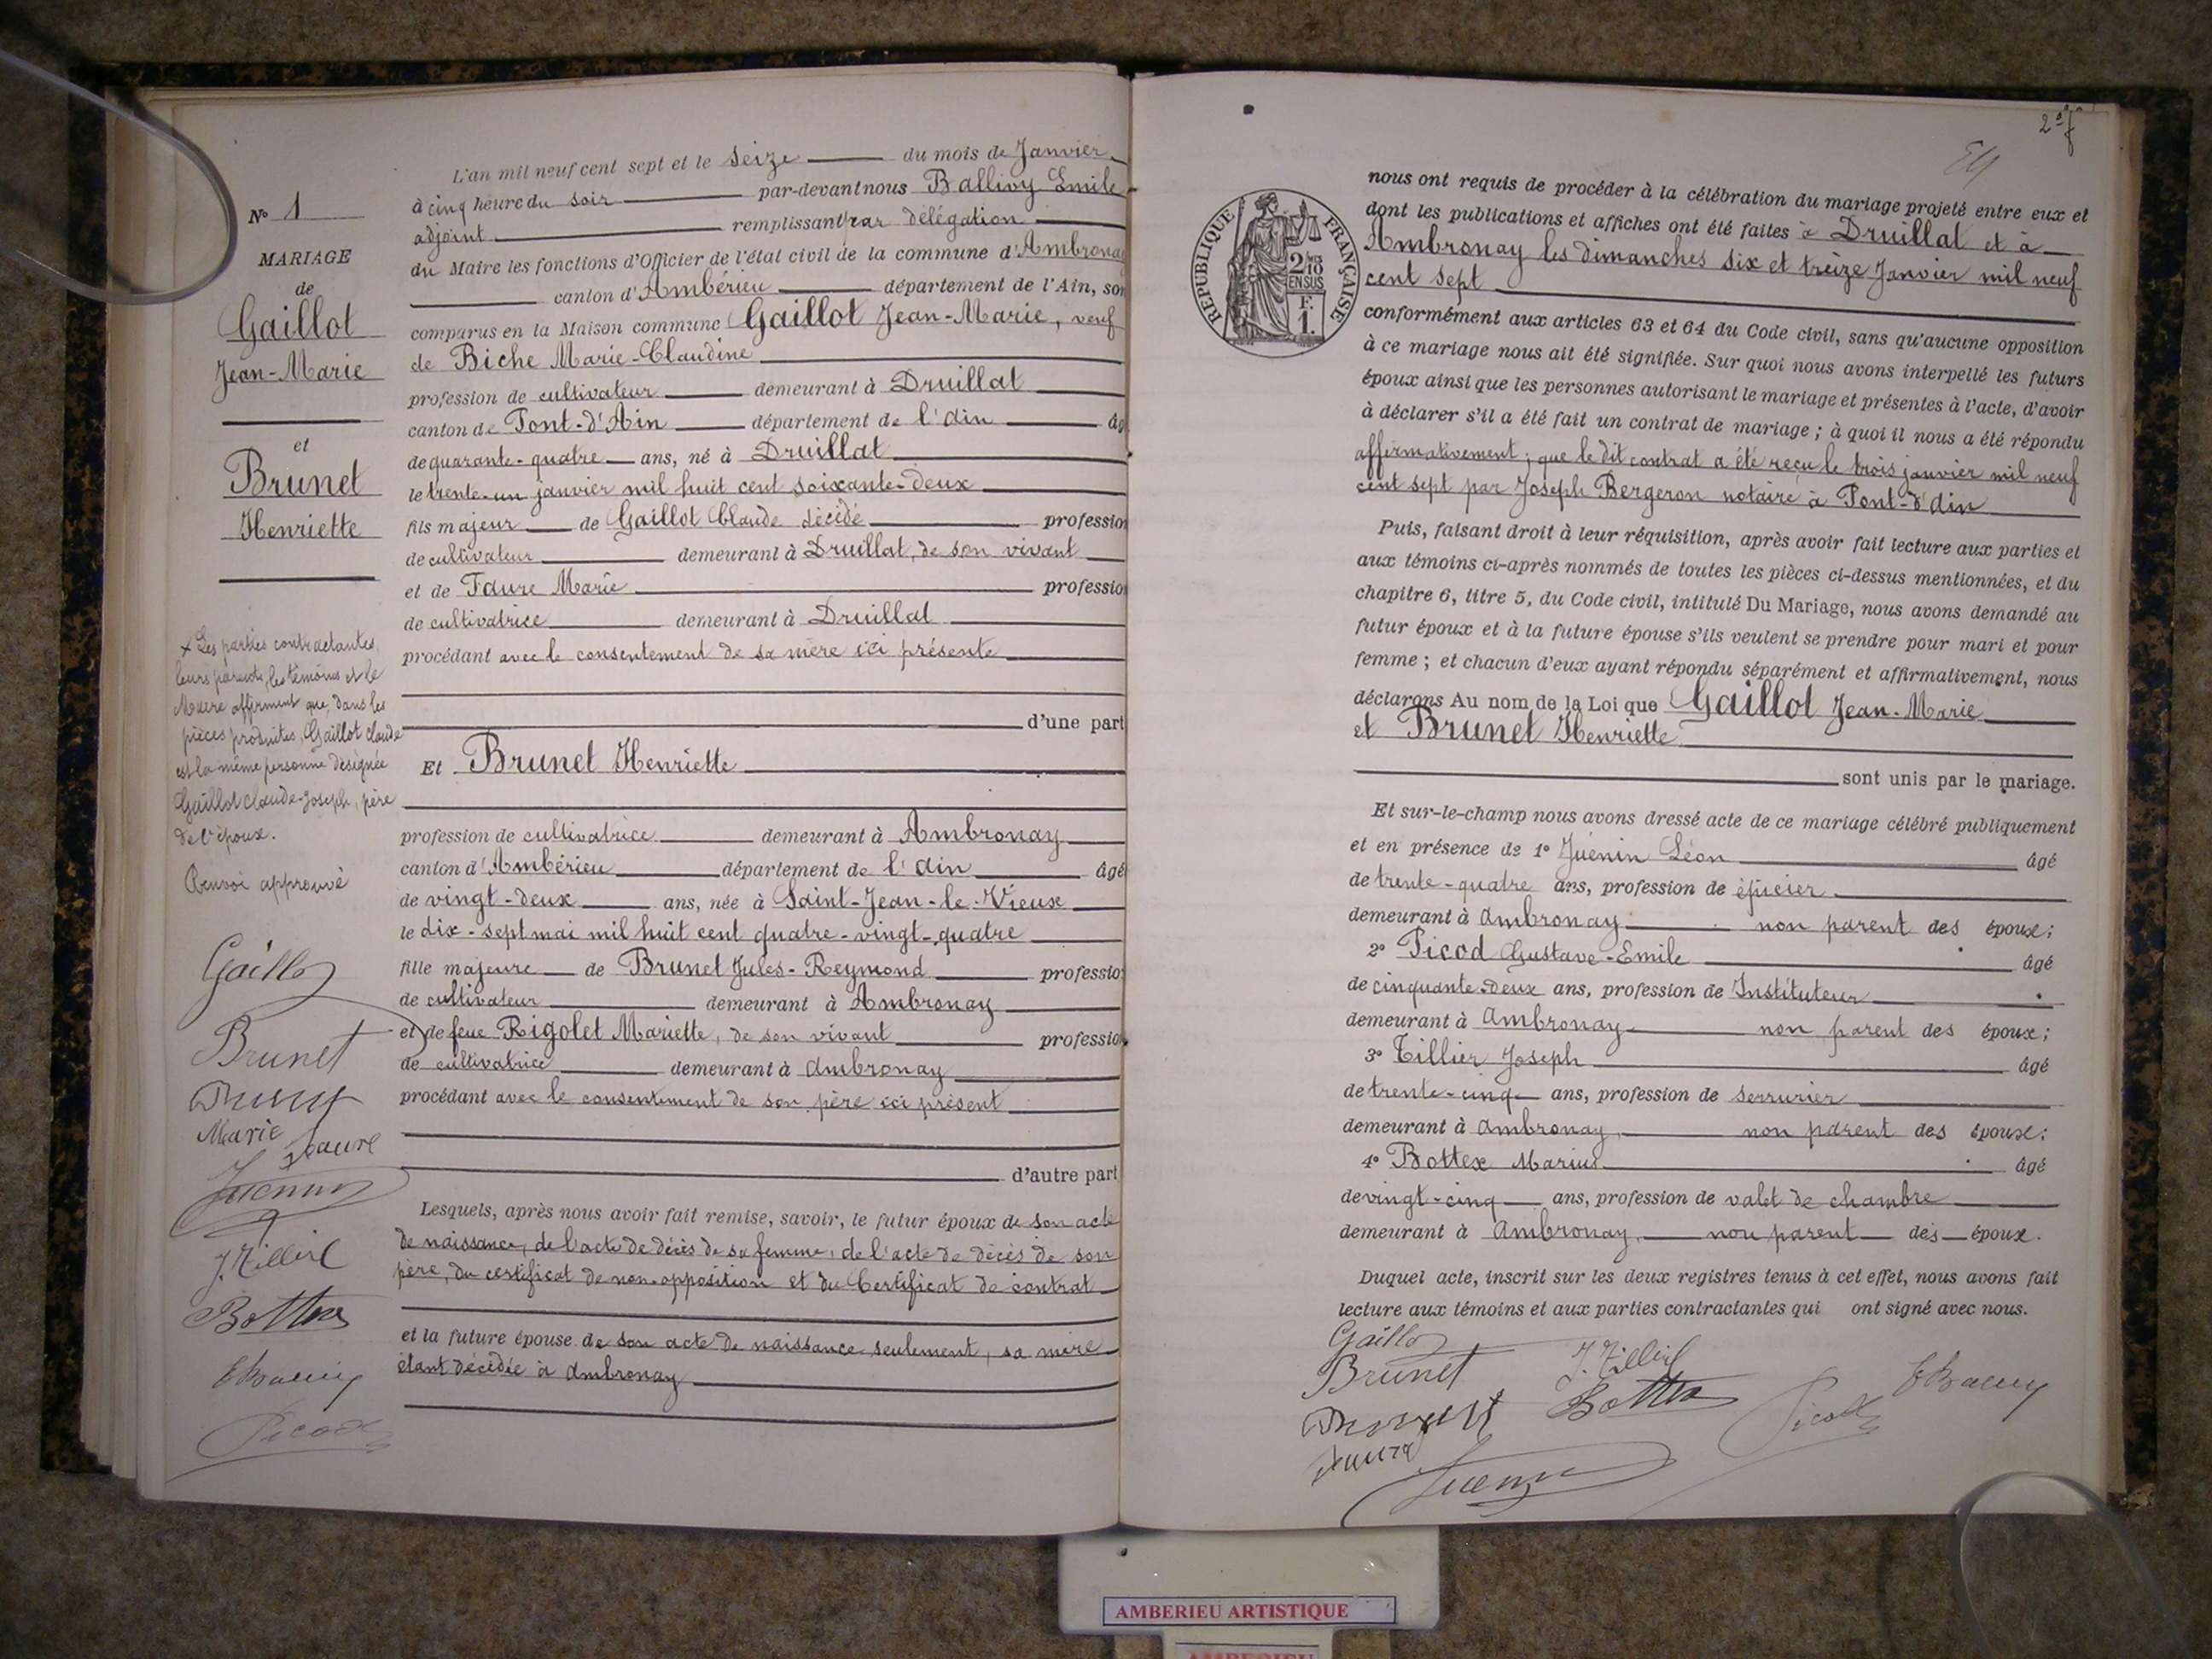 N° 1
MARIAGE
de
Gaillot
Jean-Marie
et
Brunet
Henriette
x Les parties contractantes,
leurs parents, les témoins et le
Maire affirment que, dans les
pièces produites, Gaillot claude
est la même personne désignée
Gaillot claude-Joseph, père
de l'époux.
Renvoi approuvé
Gaillot
Brunet
Brunet
Marie
Faure
Juenin
J. Tillier
Bottex
Picod
L'an mil neuf cent sept et le seize du mois de Janvier
à cinq heure du soir par-devant nous Ballivy Emile
adjoint remplissant par délégation
du Maire les fonctions d'Officier de l'état civil de la commune d'Ambronay
canton d'Ambérieu département de l'Ain, son
comparus en la Maison commune Gaillot Jean-Marie, veuf
de Biche Marie-Claudine
profession de cultivateur demeurant à Druillat
canton de Pont-d'Ain département de l'ain âg
de quarante-quatre ans, né à Druillat
le trente-un janvier mil huit cent soixante-deux
fils majeur de Gaillot Claude décédé profession
de cultivateur demeurant à Druillat, de son vivant
et de Faure Marie profession
de cultivatrice demeurant à Druillat
procédant avec le consentement de sa mère ici présente
d'une part
Et Brunet Henriette
profession de cultivatrice demeurant à Ambronay
canton d'Ambérieu département de l'ain âgé
de vingt-deux ans, née à Saint-Jean-le-Vieux
le dix-sept mai mil huit cent quatre-vingt-quatre
fille majeure de Brunet Jules-Reymond profession
de cultivateur demeurant à Ambronay
et de feue Rigolet Mariette, de son vivant profession
de cultivatrice demeurant à Ambronay
procédant avec le consentement de son père ici présent
d'autre part
Lesquels, après nous avoir fait remise, savoir, le futur époux de son acte
de naissance, de l'acte de décès de sa femme, de l'acte de décès de son
père, du certificat de non-opposition et du Certificat de contrat
et la future épouse de son acte de naissance seulement, sa mère
étant décédée à Ambronay
2e f
RÉPUBLIQUE FRANÇAISE
2/10
EN SUS
F.
1.
nous ont requis de procéder à la célébration du mariage projeté entre eux et
dont les publications et affiches ont été faites à Druillat et à
Ambronay les dimanches six et treize Janvier mil neuf
cent sept
conformément aux articles 63 et 64 du Code civil, sans qu'aucune opposition
à ce mariage nous ait été signifiée. Sur quoi nous avons interpellé les futurs
époux ainsi que les personnes autorisant le mariage et présentes à l'acte, d'avoir
à déclarer s'il a été fait un contrat de mariage ; à quoi il nous a été répondu
affirmativement ; que le dit contrat a été reçu le trois janvier mil neuf
cent sept par Joseph Bergeron notaire à Pont-d'ain
Puis, faisant droit à leur réquisition, après avoir fait lecture aux parties et
aux témoins ci-après nommés de toutes les pièces ci-dessus mentionnées, et du
chapitre 6, titre 5, du Code civil, intitulé Du Mariage, nous avons demandé au
futur époux et à la future épouse s'ils veulent se prendre pour mari et pour
femme ; et chacun d'eux ayant répondu séparément et affirmativement, nous
déclarons Au nom de la Loi que Gaillot Jean-Marie
et Brunet Henriette
sont unis par le mariage.
Et sur-le-champ nous avons dressé acte de ce mariage célébré publiquement
et en présence de 1° Juénin Léon âgé
de trente-quatre ans, profession de épicier
demeurant à Ambronay non parent des époux ;
2° Picod Gustave-Emile âgé
de cinquante-deux ans, profession de Instituteur
demeurant à Ambronay non parent des époux ;
3° Tillier Joseph âgé
de trente-cinq ans, profession de serrurier
demeurant à Ambronay, non parent des époux ;
4° Bottex Marius âgé
de vingt-cinq ans, profession de valet de chambre
demeurant à Ambronay, non parent des époux.
Duquel acte, inscrit sur les deux registres tenus à cet effet, nous avons fait
lecture aux témoins et aux parties contractantes qui ont signé avec nous.
Gaillot
Brunet
J. Tillier
Brunet
Bottex
Picod
Faure
Juenin
AMBERIEU ARTISTIQUE
AMBERIEU